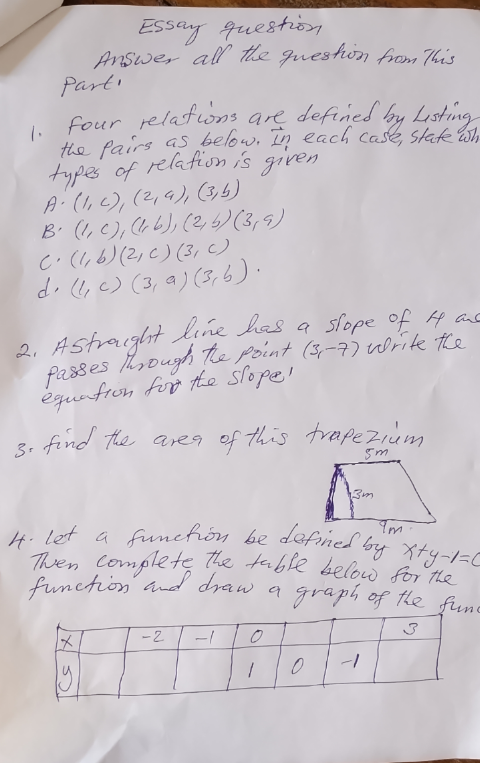 Essay question
Answer all the question from This
Part.
1. Four relations are defined by Listing
the pairs as below. In each case, state wh
types of relation is given
A. (1, c), (2, a), (3, b)
B. (1, c), (1, b), (2, b) (3, a)
C. (1, b) (2, c) (3, c)
d. (1, c) (3, a) (3, b).
2. A straight line has a slope of 4 an
passes through the point (3, -7) write the
equation for the slope!
3. find the area of this trapezium
5m
3m
9m.
4. Let a function be defined by x+y-1=0
Then complete the table below for the
function and draw a graph of the func
x -2 -1 0 3
y 1 0 -1